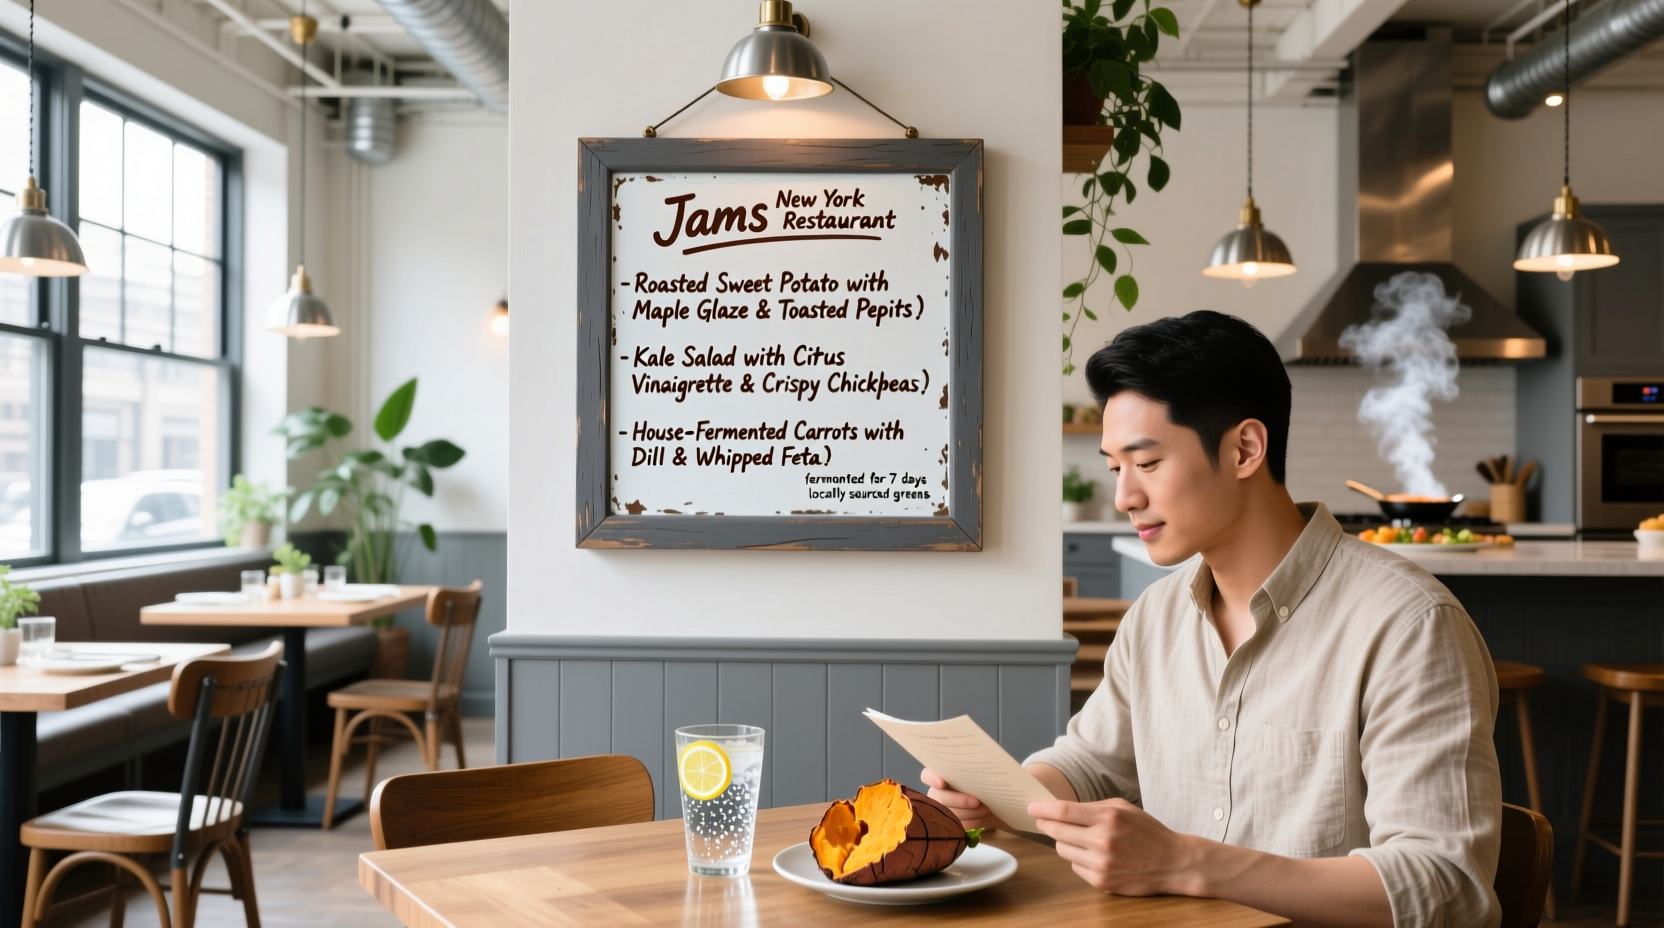 Jams New York
Restaurant
- Roasted Sweet Potato with
Maple Glaze & Toasted Pepits)
- Kale Salad with Citus
Vinaigrette & Crispy Chickpeas)
- House-Fermented Carrots with
Dill & Whipped Feta)
fermonted for 7 days
locally sourced greens